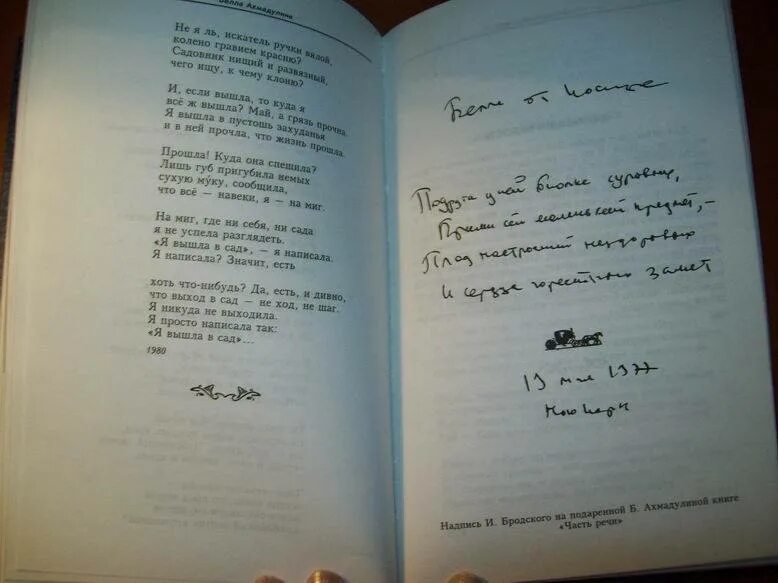 Белла Ахмадулина
Не я ль, искатель ручки вялой,
колено гравием красню?
Садовник нищий и развязный,
чего ищу, к чему клоню?
И, если вышла, то куда я
всё ж вышла? Май, а грязь прочна.
Я вышла в пустошь захуданья
и в ней прочла, что жизнь прошла.
Прошла! Куда она спешила?
Лишь губ пригубила немых
сухую му́ку, сообщила,
что всё — навеки, я — на миг.
На миг, где ни себя, ни сада
я не успела разглядеть.
«Я вышла в сад», — я написала.
Я написала? Значит, есть
хоть что-нибудь? Да, есть, и дивно,
что выход в сад — не ход, не шаг.
Я никуда не выходила.
Я просто написала так:
«Я вышла в сад»...
1980
Белле от Иосифа
Подруга дней биолке суровых,
Прими сей маленький предмет, —
Плод настроений нездоровых
И сердца горестных замет
19 мая 1977
Нью Йорк
Надпись И. Бродского на подаренной Б. Ахмадулиной книге
«Часть речи»